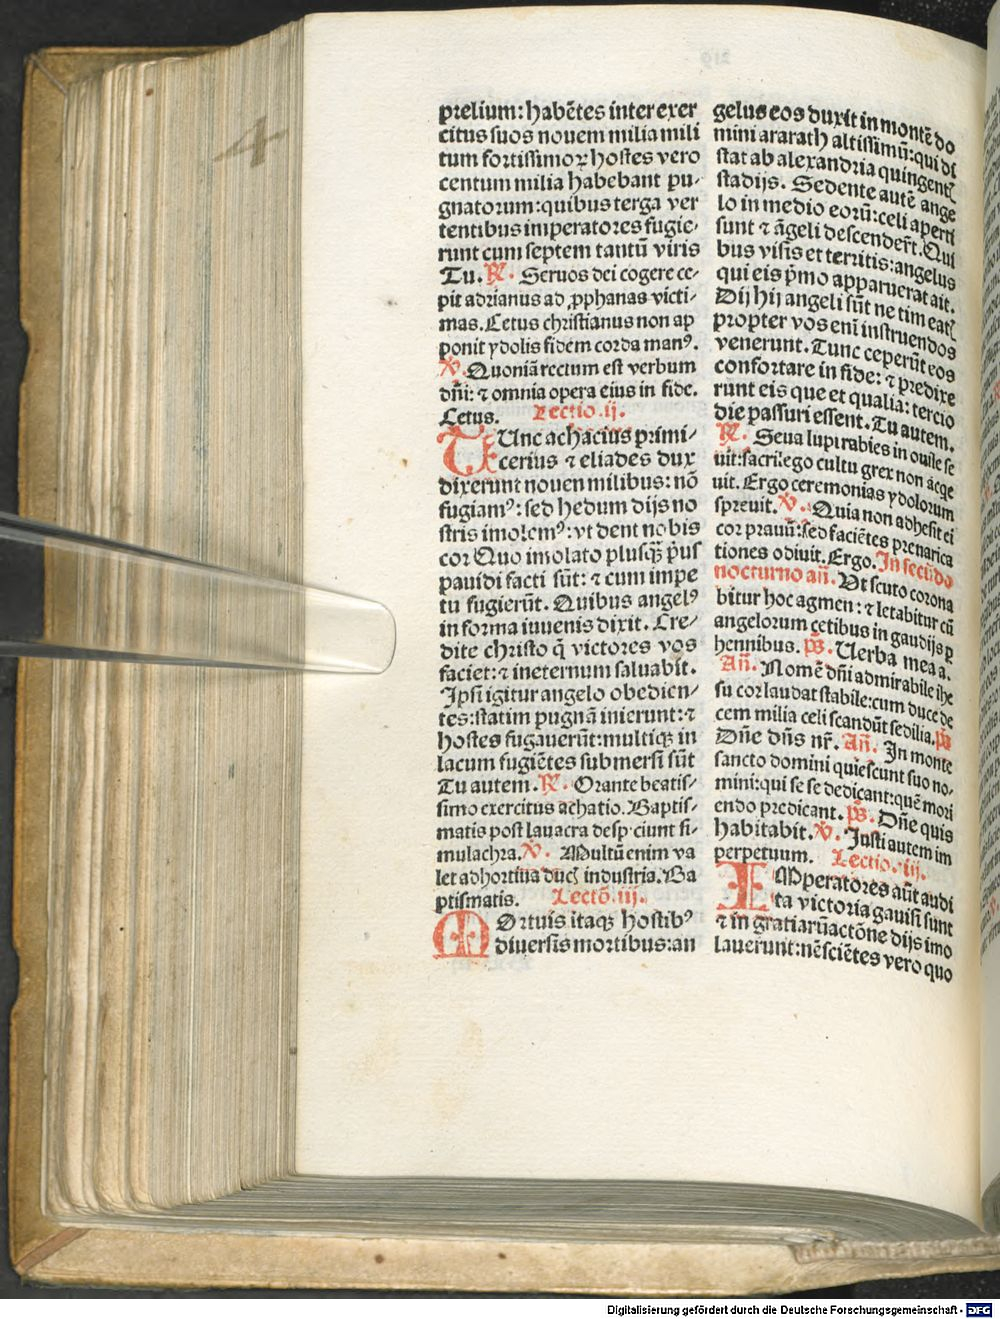 4
prelium: habētes inter exer
citus suos nouem milia mili
tum fortissimoꝝ hostes vero
centum milia habebant pu-
gnatorum: quibus terga ver
tentibus imperatores fugie-
runt cum septem tantū viris
Tu. ℟. Seruos dei cogere ce-
pit adrianus ad ꝓphanas victi-
mas. Cetus christianus non ap
ponit ydolis fidem corda manꝰ.
℣. Quoniā rectum est verbum
dñi: ⁊ omnia opera eius in fide.
Cetus. Lectio .ij.
TUnc achacius primi-
cerius ⁊ eliades dux
dixerunt nouen milibus: nō
fugiamꝰ: sed hedum dijs no
stris imolemꝰ: vt dent nobis
cor Quo imolato plusqꝫ pͥus
pauidi facti sūt: ⁊ cum impe
tu fugierūt. Quibus angelꝰ
in forma iuuenis dixit. Cre-
dite christo q̄ victores vos
faciet: ⁊ ineternum saluabit.
Ipsi igitur angelo obedien-
tes: statim pugnā inierunt: ⁊
hostes fugauerūt: multiqꝫ in
lacum fugiētes submersi sūt
Tu autem. ℟. Orante beatis-
simo exercitus achatio. Baptis-
matis post lauacra desp ciunt si-
mulachra. ℣. Multū enim va
let adhortiua duc industria. Ba
ptismatis. Lectō .iij.
MOrtuis itaqꝫ hostibꝰ
diuersis mortibus: an
gelus eos duxit in montē do
mini ararath altissimū: qui di
stat ab alexandria quingentꝭ
stadijs. Sedente autē ange
lo in medio eorū: celi aperti
sunt ⁊ āgeli descenderūt. Qui
bus visis et territis: angelus
qui eis pͥmo apparuerat ait.
Dij hij angeli sūt ne timeatꝭ
propter vos eni instruendos
venerunt. Tunc ceperūt eos
confortare in fide: ⁊ predixe
runt eis que et qualia: tercio
die passuri essent. Tu autem.
℟. Seua lupi rabies in ouile se
uit: sacrilego cultu grex non acqe
uit. Ergo ceremonias ydolorum
spreuit. ℣. Quia non adhesit ei
cor prauū: sed faciētes prenarica
tiones odiuit. Ergo. In secūdo
nocturno añ. Vt scuto corona
bitur hoc agmen: ⁊ letabitur cū
angelorum cetibus in gaudijs ꝑ
hennibus. p̄s. Verba mea a.
Añ. Nomē dñi admirabile ihe
su cor laudat stabile: cum duce de
cem milia celi scandūt sedilia. p̄s
Dñe dñs nr̄. Añ. In monte
sancto domini quiescunt suo no-
mini: qui se se dedicant: quē mori
endo predicant. p̄s. Dñe quis
habitabit. ℣. Justi autem im
perpetuum. Lectio .iij.
IMperatores aūt audi
ta victoria gauisi sunt
⁊ in gratiarū actōne dijs imo
lauerunt: nēsciētes vero quo
Digitalisierung gefördert durch die Deutsche Forschungsgemeinschaft - DFG